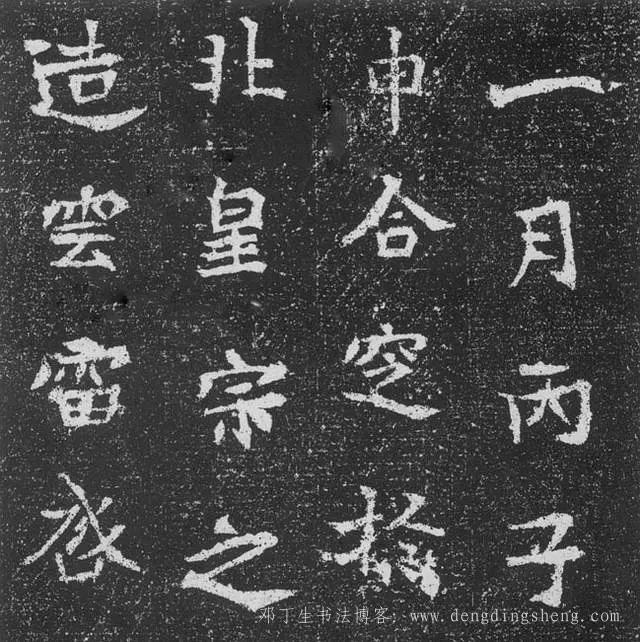 一月丙子
申合窆扵
北皇宗之
造雲雷启
邓丁生书法博客：www.dengdingsheng.com